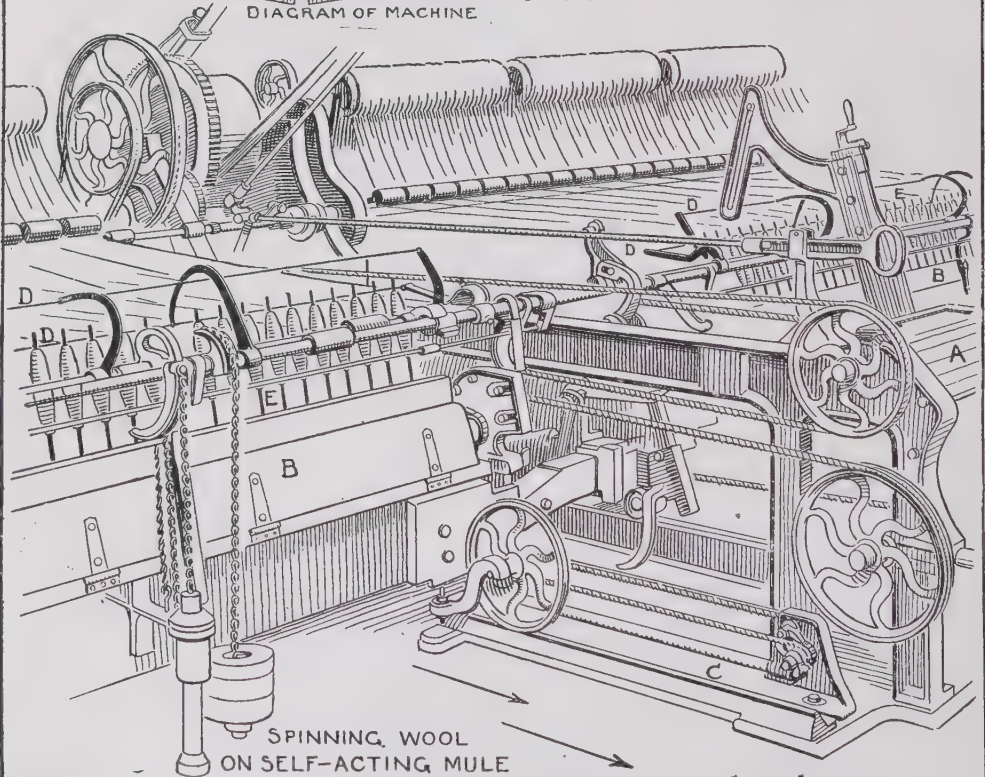 DIAGRAM OF MACHINE
D
E
D
B
D
D
A
E
B
C
SPINNING WOOL
ON SELF-ACTING MULE